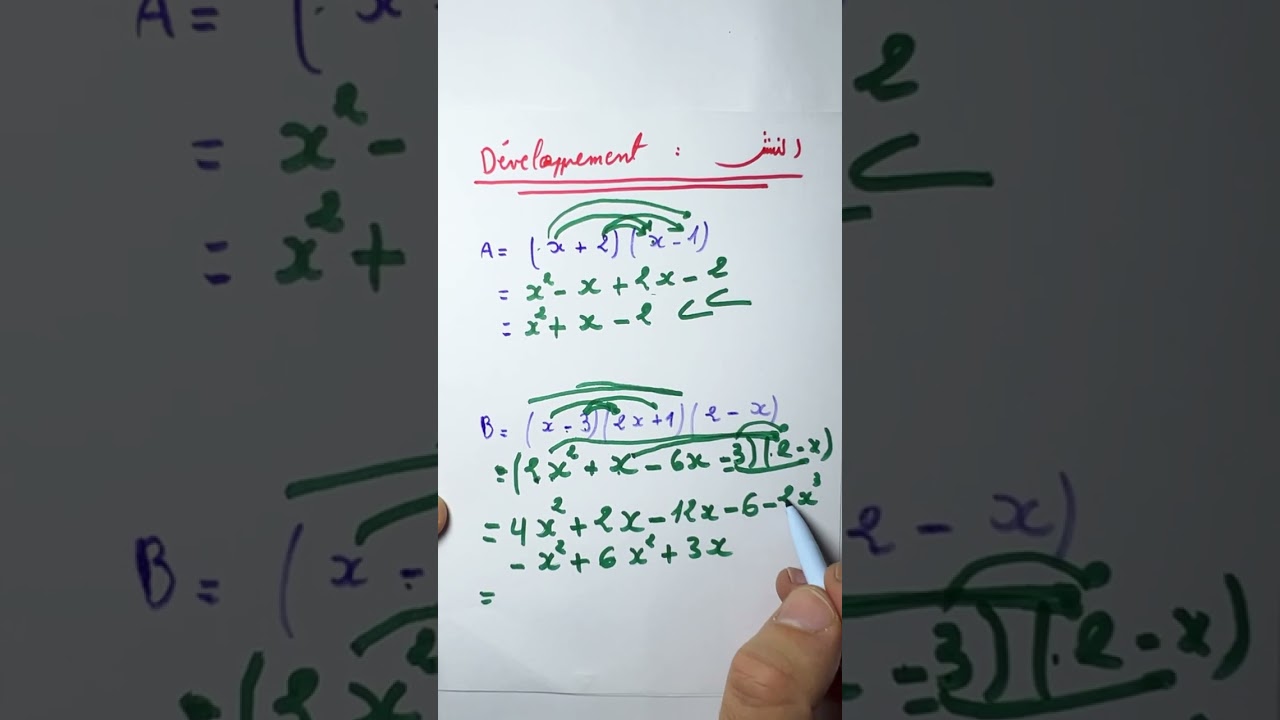 Développement : النشر
A = (x + 2)(x - 1)
= x² - x + 2x - 2
= x² + x - 2
B = (x - 3)(2x + 1)(2 - x)
= (2x² + x - 6x - 3)(2 - x)
= 4x² + 2x - 12x - 6 - 2x³
- x² + 6x² + 3x
=